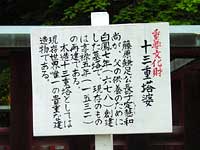 重要文化財
十三重塔婆
藤原鎌足公長子定慧和
尚が、父の供養のために
白鳳七年(六七八)創建
した墓塔で、現在のもの
は享禄五年(一五三二)
の再建である。
木造十三重塔としては
現存世界唯一の貴重な建
造物である。